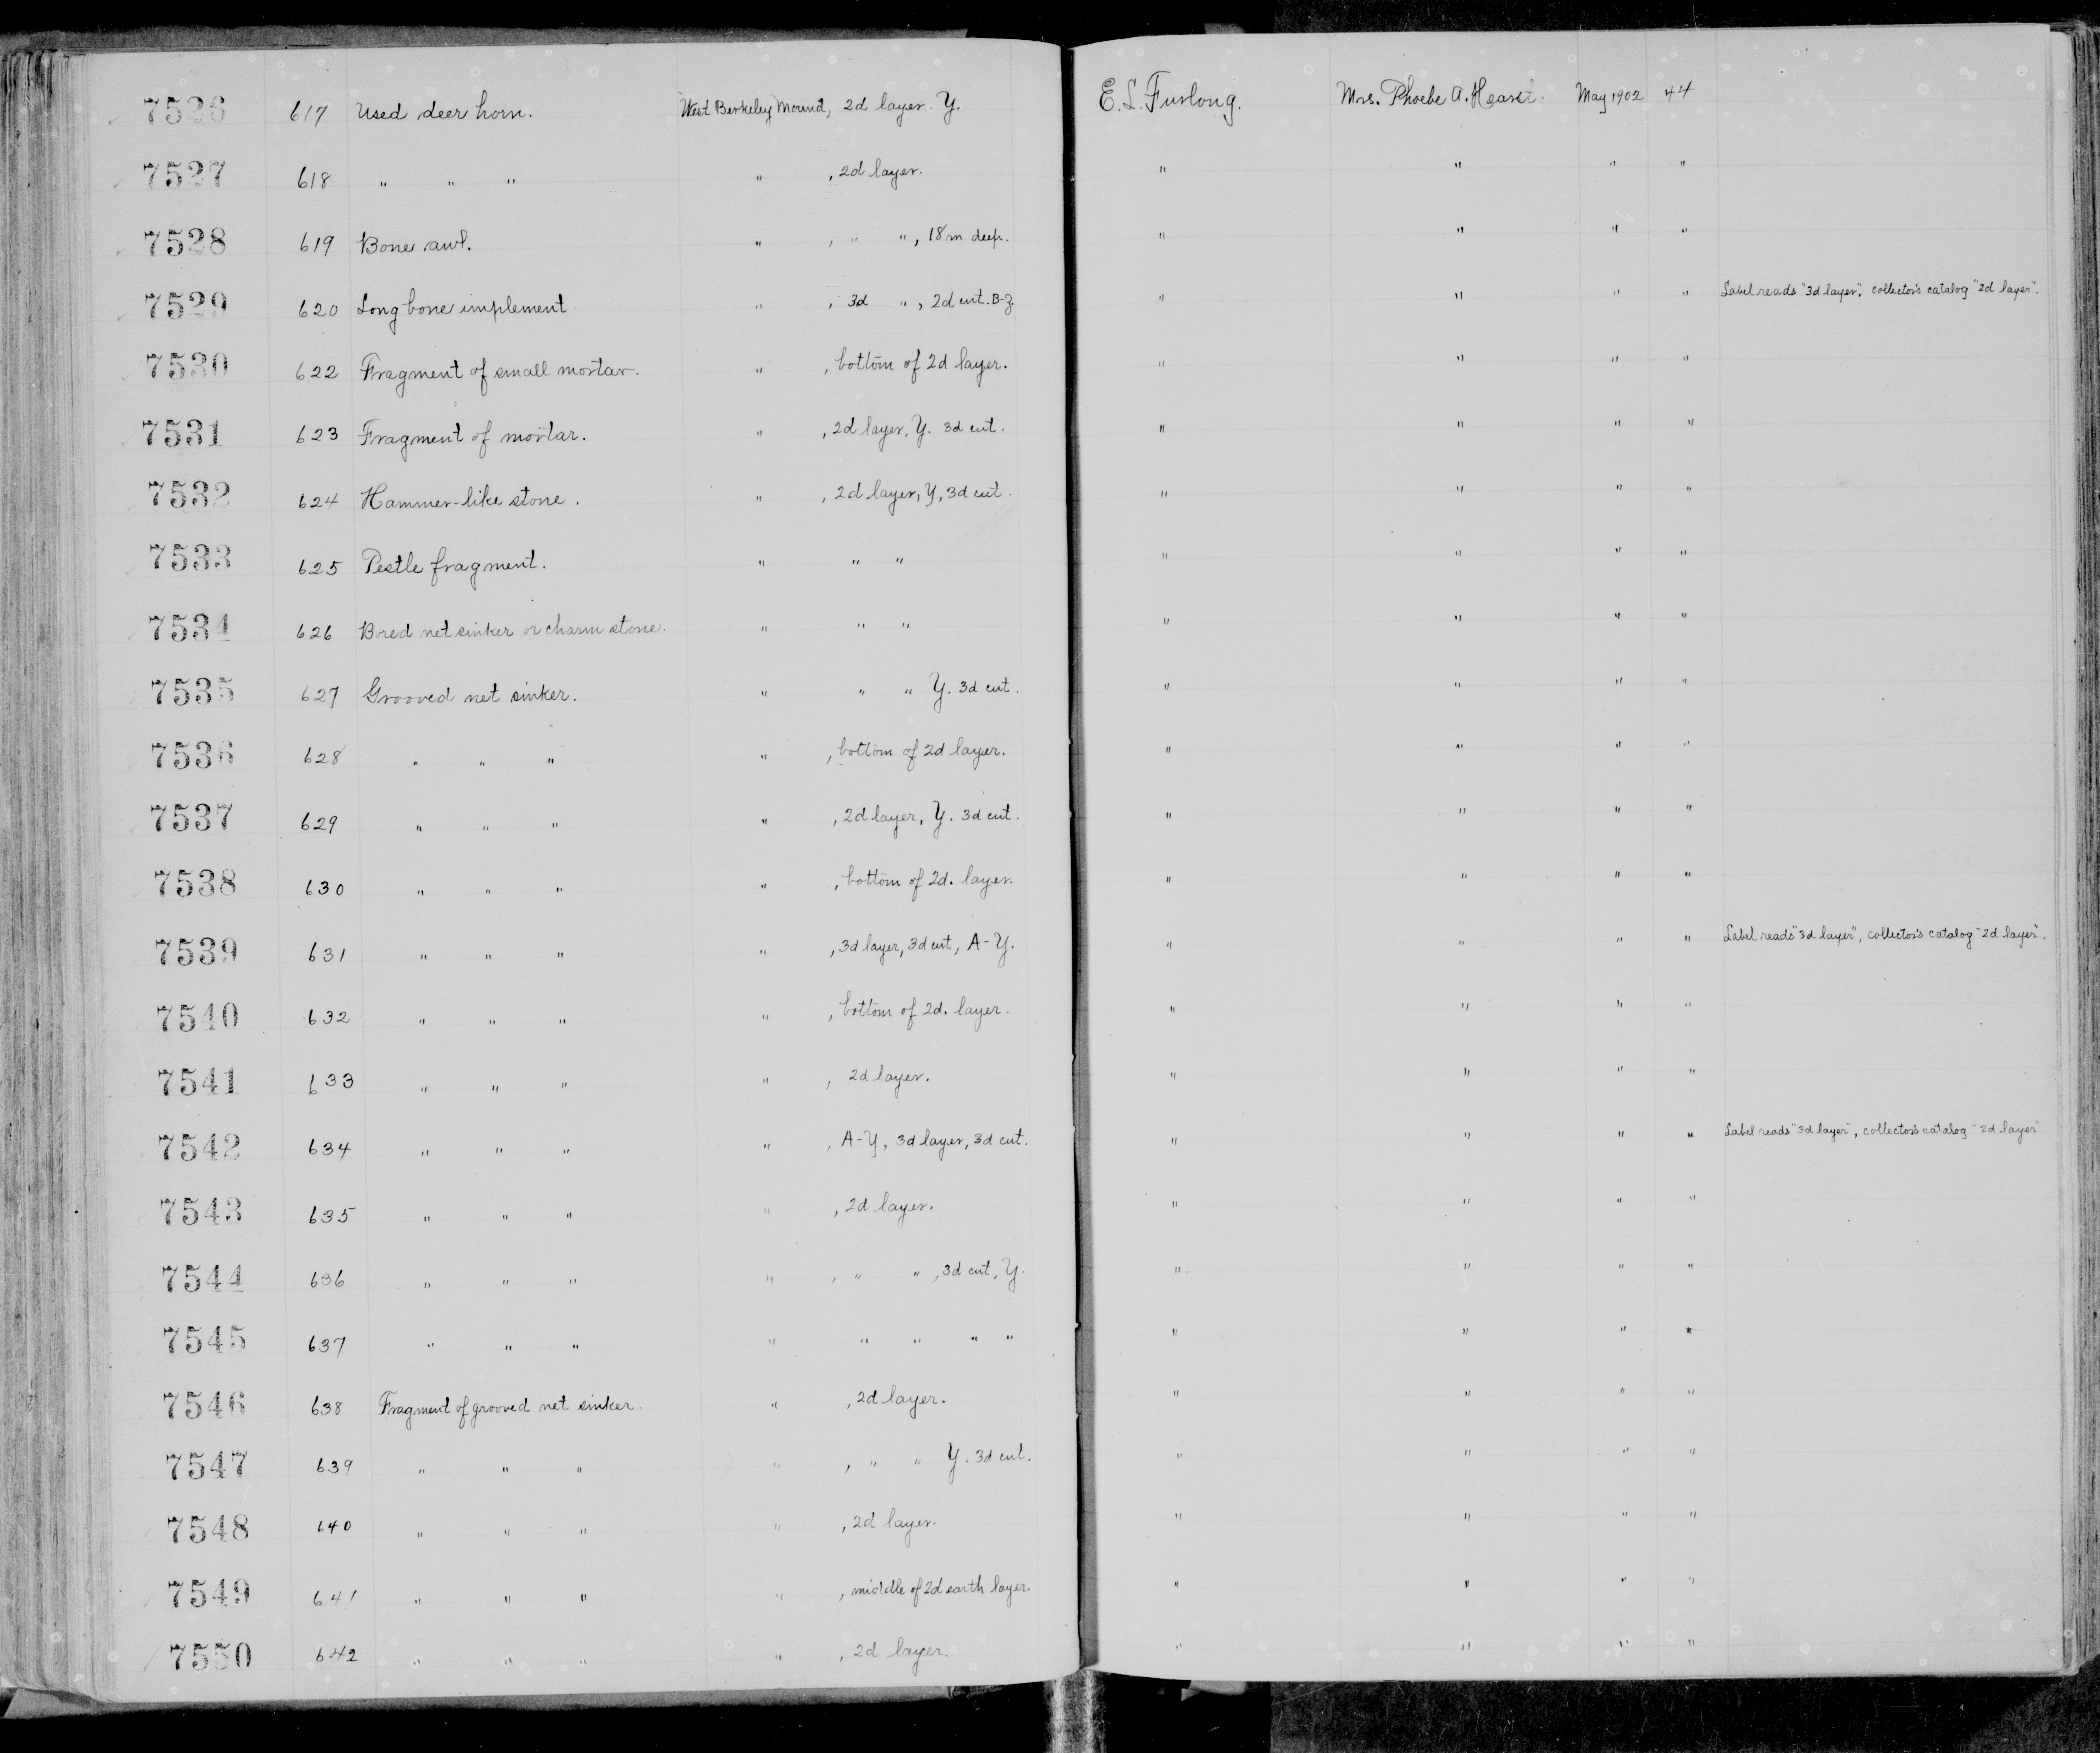 7526 617 Used deer horn. West Berkeley Mound, 2d layer. Y. E. L. Furlong. Mrs. Phoebe A. Hearst. May 1902 44
7527 618 " " " " , 2d layer. " " " "
7528 619 Bone awl. " , " " , 18 in deep. " " " "
7529 620 Long bone implement. " , 3d " , 2d cut. B-Z. " " " " Label reads "3d layer", collector's catalog "2d layer".
7530 622 Fragment of small mortar. " , bottom of 2d layer. " " " "
7531 623 Fragment of mortar. " , 2d layer, Y. 3d cut. " " " "
7532 624 Hammer-like stone. " , 2d layer, Y, 3d cut. " " " "
7533 625 Pestle fragment. " " " " " " "
7534 626 Bored net sinker or charm stone. " " " " " " "
7535 627 Grooved net sinker. " " " Y. 3d cut. " " " "
7536 628 " " " " , bottom of 2d layer. " " " "
7537 629 " " " " , 2d layer, Y. 3d cut. " " " "
7538 630 " " " " , bottom of 2d. layer. " " " "
7539 631 " " " " , 3d layer, 3d cut, A-Y. " " " " Label reads "3d layer", collector's catalog "2d layer".
7540 632 " " " " , bottom of 2d. layer. " " " "
7541 633 " " " " , 2d layer. " " " "
7542 634 " " " " , A-Y, 3d layer, 3d cut. " " " " Label reads "3d layer", collector's catalog "2d layer"
7543 635 " " " " , 2d layer. " " " "
7544 636 " " " " , " " , 3d cut, Y. " " " "
7545 637 " " " " " " " " " " " "
7546 638 Fragment of grooved net sinker. " , 2d layer. " " " "
7547 639 " " " " , " " Y. 3d cut. " " " "
7548 640 " " " " , 2d layer. " " " "
7549 641 " " " " , middle of 2d earth layer. " " " "
7550 642 " " " " , 2d layer. " " " "